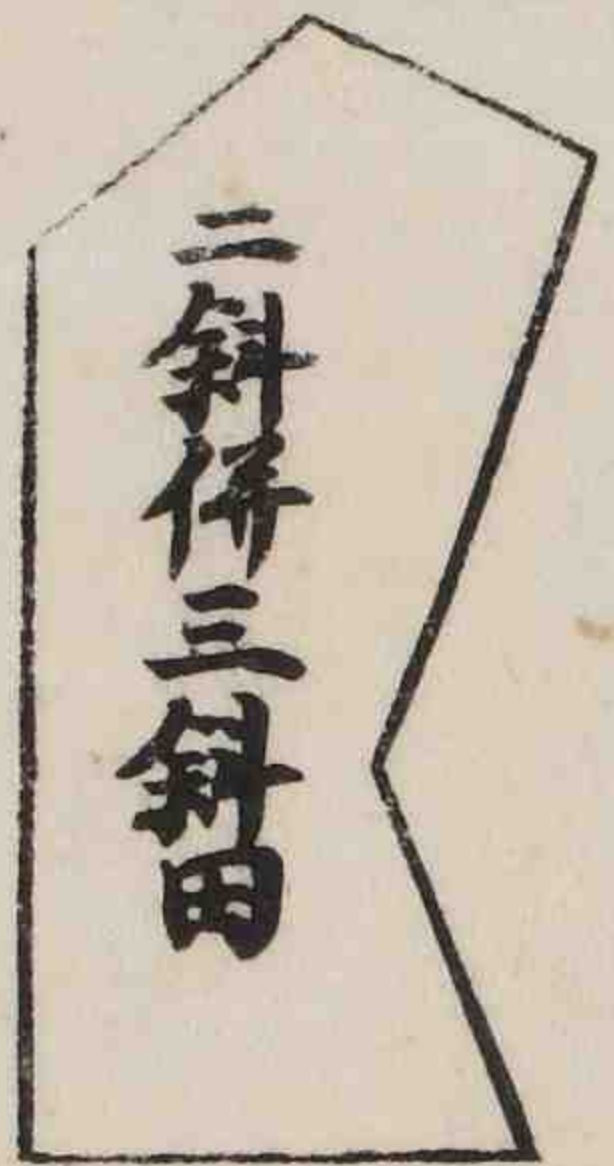 二斜併三斜田